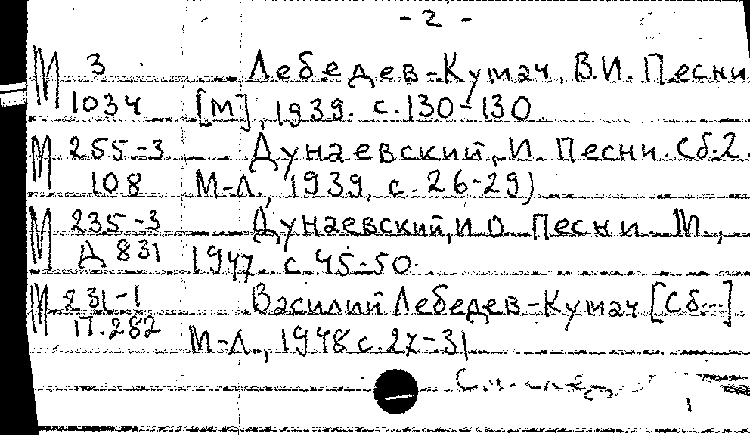 - 2 -
М 3 Лебедев-Кумач, В.И. Песни
1034 [М], 1939. с. 130-130
М 255-3 Дунаевский, И. Песни. Сб. 2.
108 М-Л., 1939, с. 26-29)
М 235-3 Дунаевский, И О Песни М.,
Д 831 1947. с. 45-50
М 231-1 Василий Лебедев-Кумач [Сб-]
П. 282 М-Л., 1948 с. 27-31
См. след